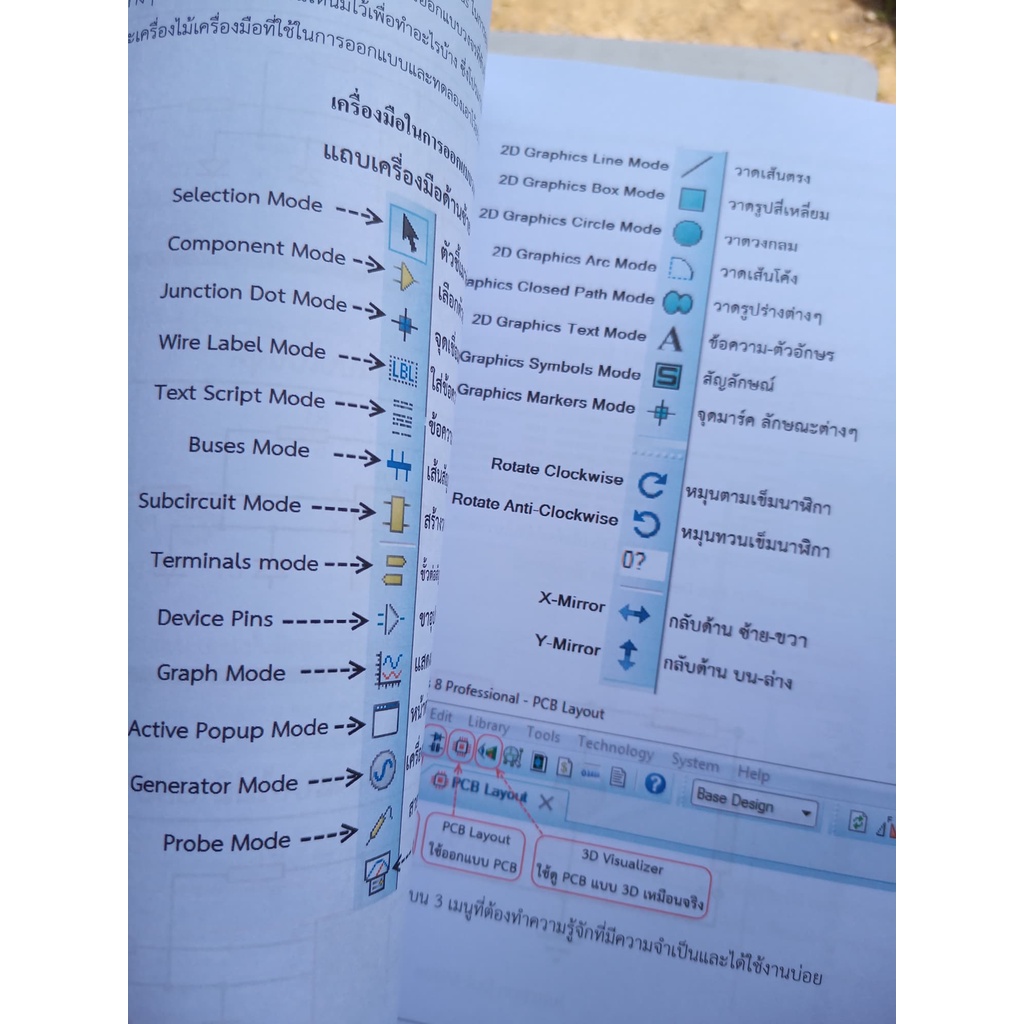 ะเครื่องไม้เครื่องมือที่ใช้ในการออกแบบและทดลอง
เครื่องมือในการออกแบบ
แถบเครื่องมือด้านซ้าย
Selection Mode
Component Mode
Junction Dot Mode
Wire Label Mode
LBL
Text Script Mode
Buses Mode
Subcircuit Mode
Terminals mode
Device Pins
Graph Mode
Active Popup Mode
Generator Mode
Probe Mode
2D Graphics Line Mode วาดเส้นตรง
2D Graphics Box Mode วาดรูปสี่เหลี่ยม
2D Graphics Circle Mode วาดวงกลม
2D Graphics Arc Mode วาดเส้นโค้ง
aphics Closed Path Mode วาดรูปร่างต่างๆ
2D Graphics Text Mode A ข้อความ-ตัวอักษร
Graphics Symbols Mode S สัญลักษณ์
Graphics Markers Mode จุดมาร์ค ลักษณะต่างๆ
Rotate Clockwise หมุนตามเข็มนาฬิกา
Rotate Anti-Clockwise หมุนทวนเข็มนาฬิกา
0?
X-Mirror กลับด้าน ซ้าย-ขวา
Y-Mirror กลับด้าน บน-ล่าง
8 Professional - PCB Layout
Edit Library Tools Technology System Help
Base Design
PCB Layout
PCB Layout
ใช้ออกแบบ PCB
3D Visualizer
ใช้ดู PCB แบบ 3D เหมือนจริง
บน 3 เมนูที่ต้องทำความรู้จักที่มีความจำเป็นและได้ใช้งานบ่อย